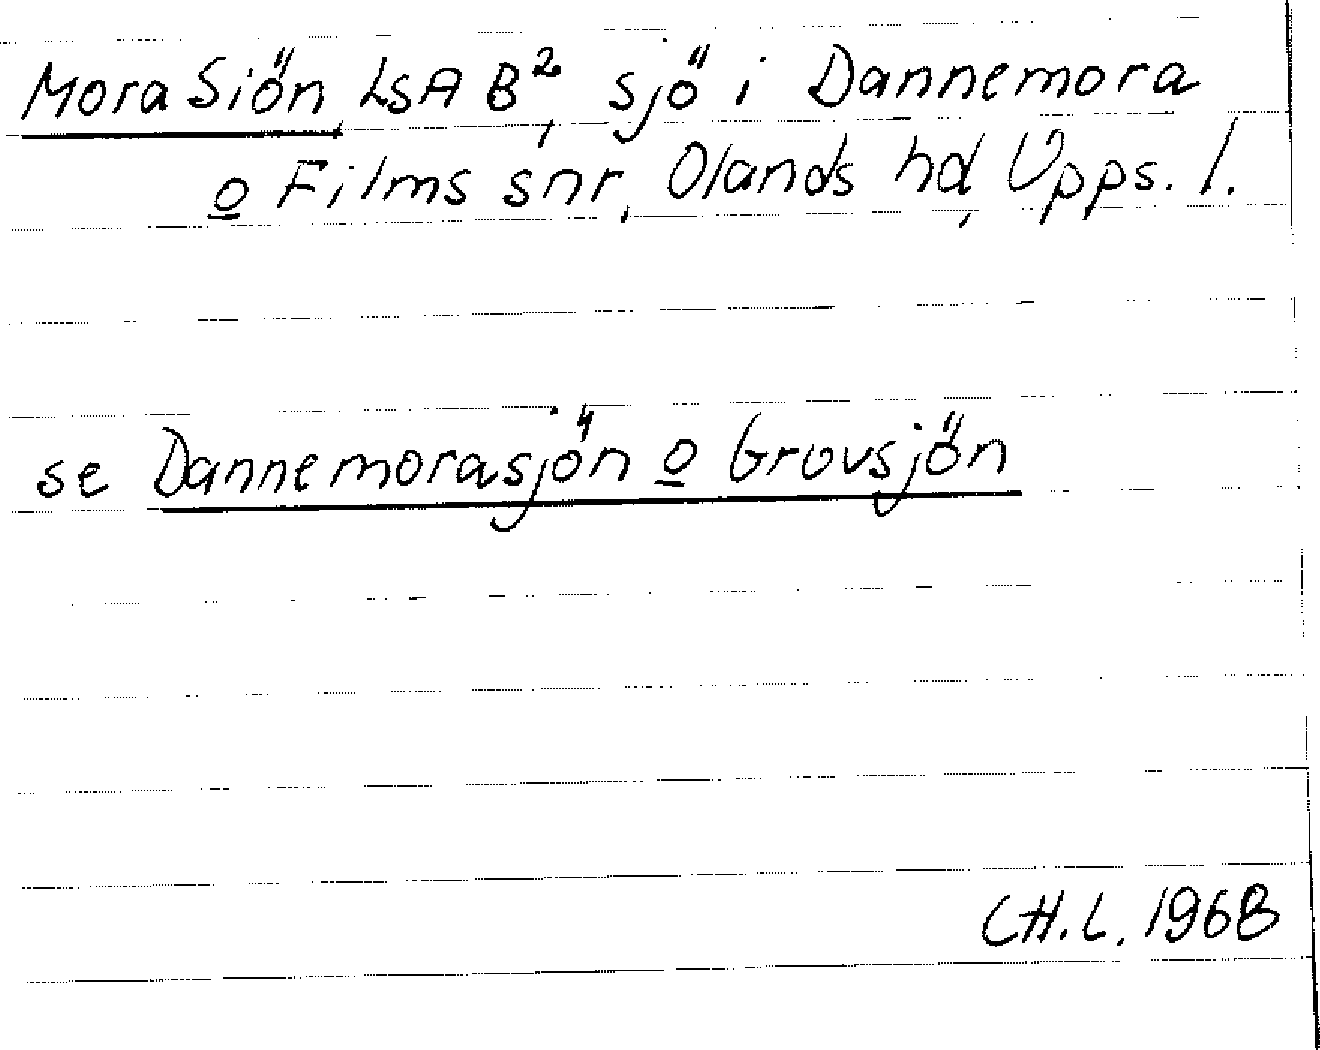 Mora Siön, LSA B², sjö i Dannemora
o Films snr, Olands hd, Upps. l.
se Dannemorasjön o Grovsjön
CH.L. 1968